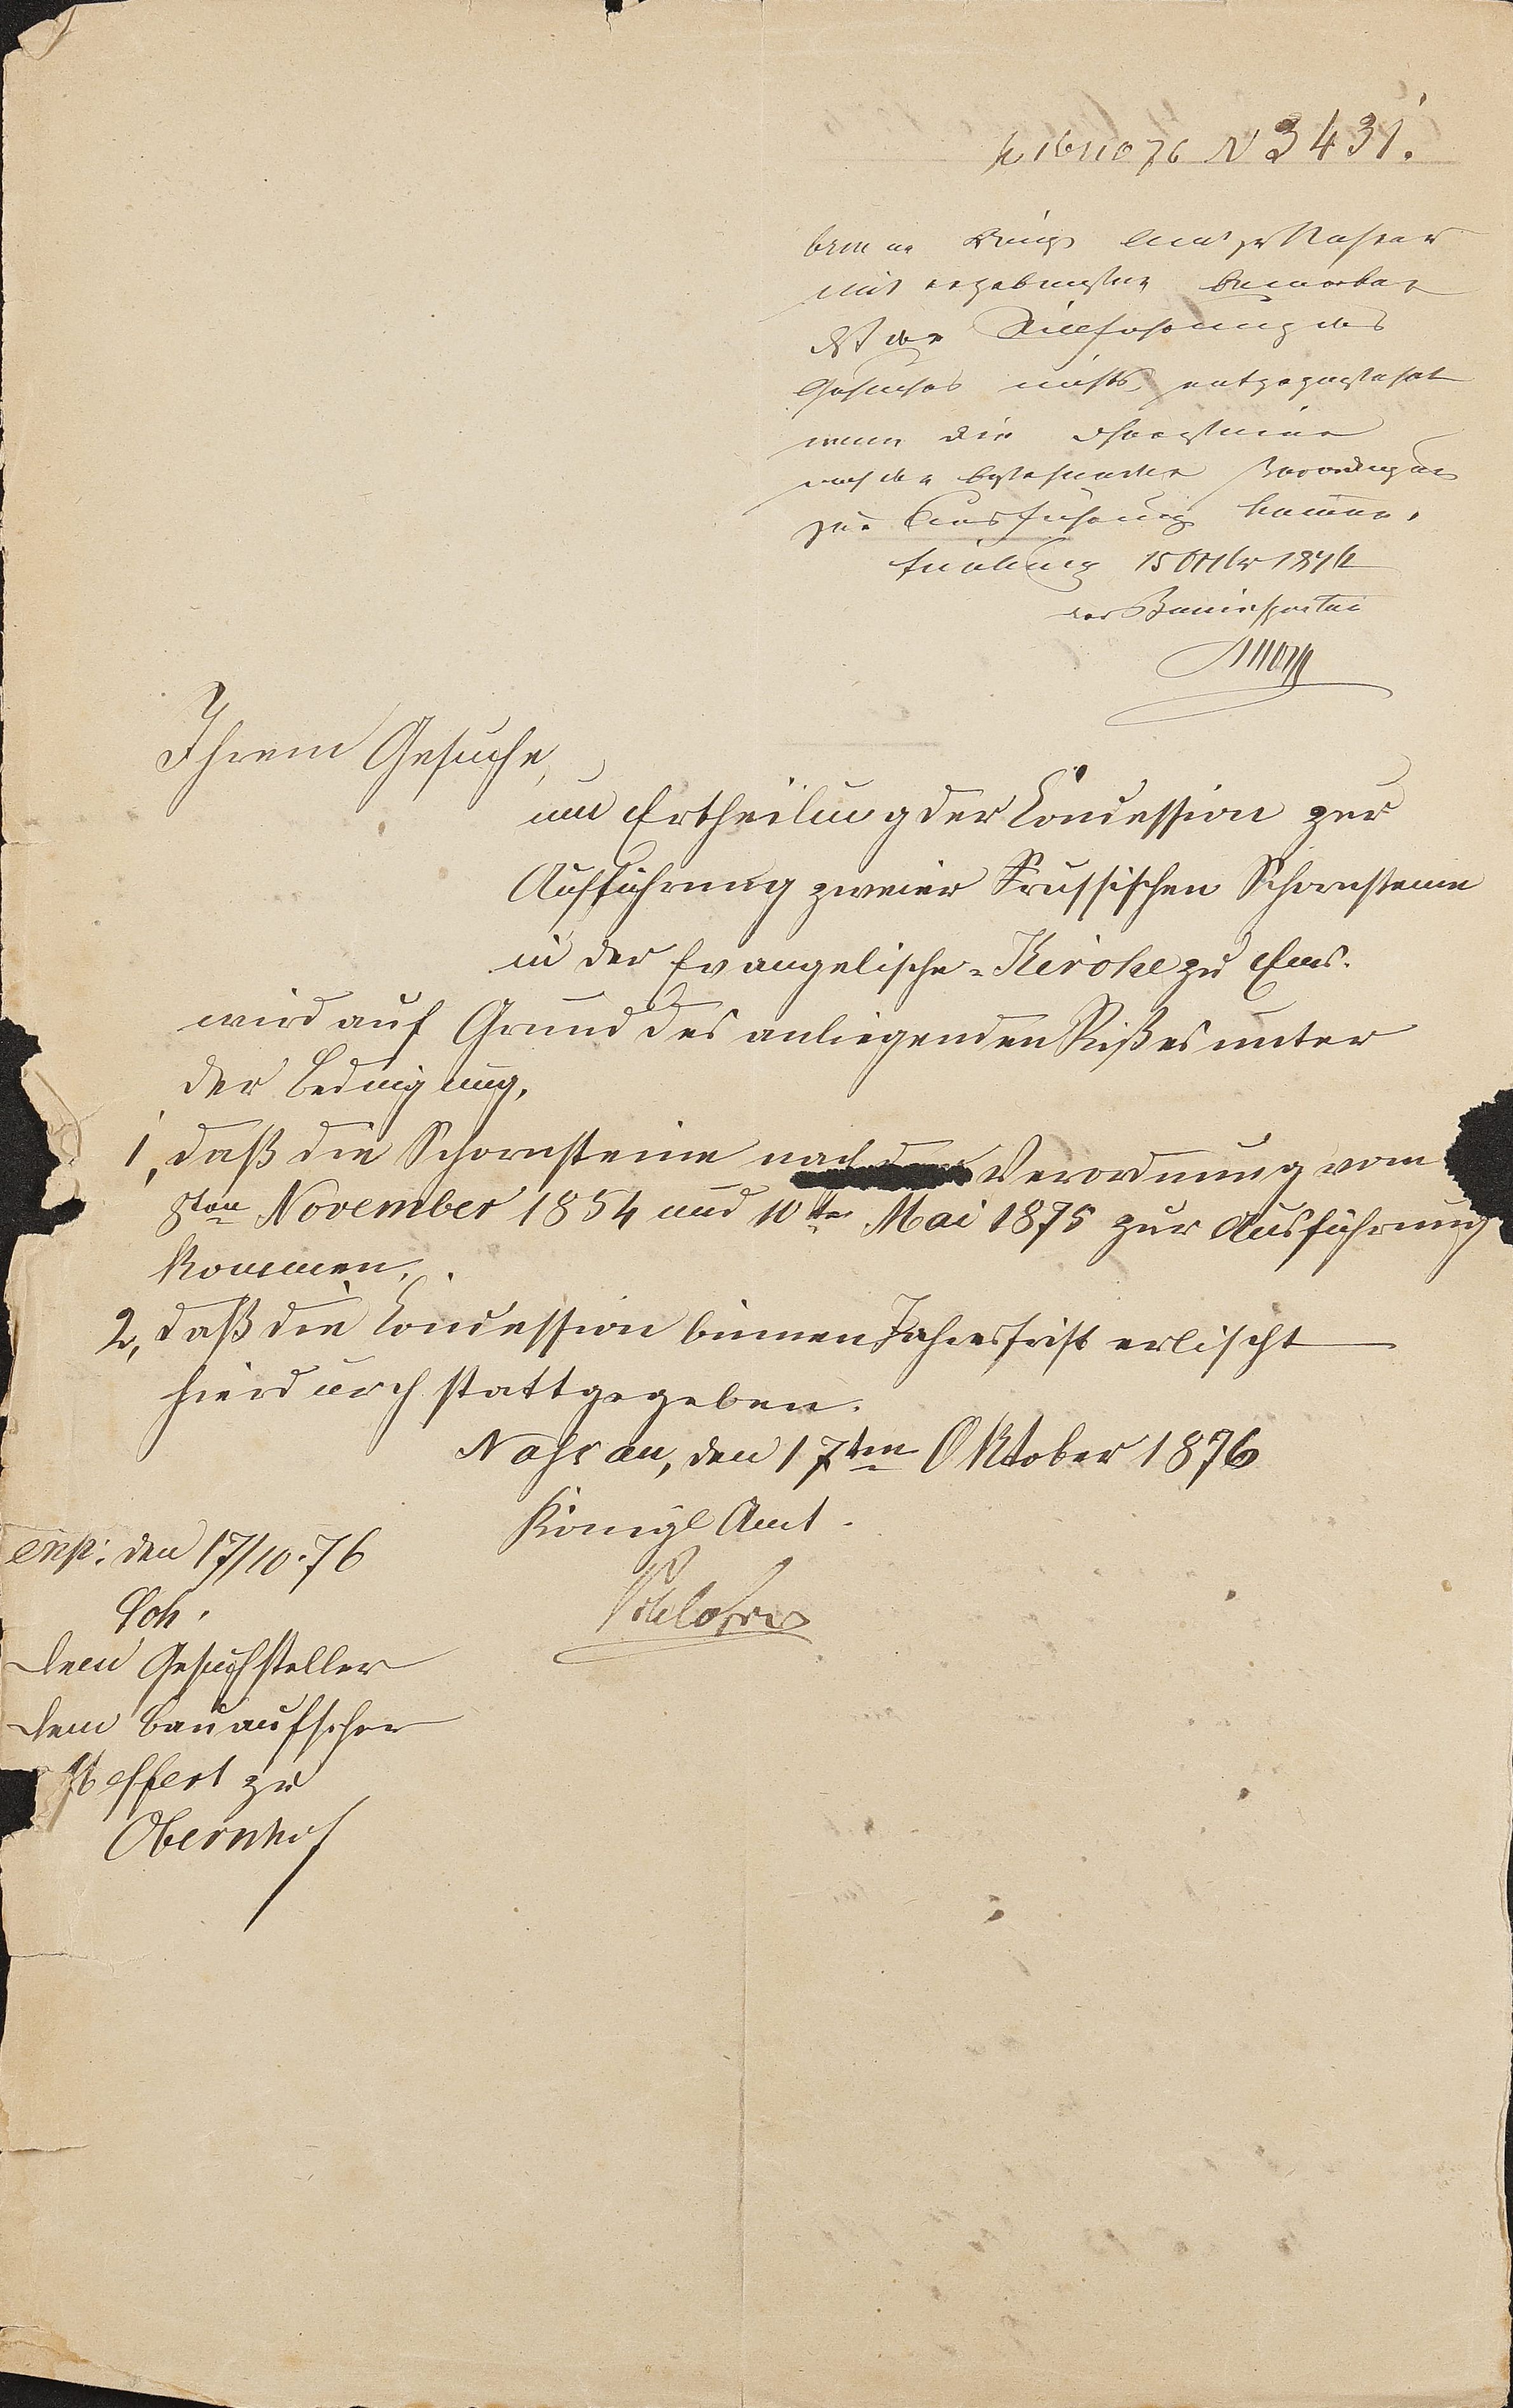 16/10 76 N 3431.
Königl Amt zu Nassau
mit ergebenstem Bemerken
daß der Willfahrung des
Gesuches nichts entgegensteht
wenn die Schornsteine
nach den bestehenden Verordnungen
zur Ausführung kommen.
15 Octbr 1876
der Bauinspector
Ihrem Gesuche,
um Ertheilung der Concession zur
Aufführung zweier Srussischen Schornsteine
in der Evangelische-Kirche zu Ems.
wird auf Grund des anliegenden Rißes unter
der Bedingung,
1, daß die Schornsteine nach der Verordnung vom
8ten November 1854 und 10ten Mai 1875 zur Ausführung
kommen,
2, daß die Concession binnen Jahresfrist erlischt
hierdurch stattgegeben.
Nassau, den 17ten Oktober 1876
Königl Amt.
exp. den 17/10.76
Loh.
dem Gesuchsteller
dem Bauaufseher
Steffert zu
Obernhof